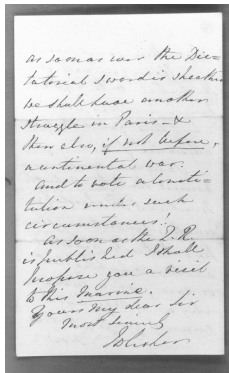 as soon as ever the Dic-
tatorial sword is sheathed
we shall have another
struggle in Paris - &
then also, if not before,
a continental war.
And to vote a Consti-
tution under such
circumstances!
As soon as the Q. R.
is published I shall
propose you a visit
to this Marine.
Yours my dear Sir
most sincerely